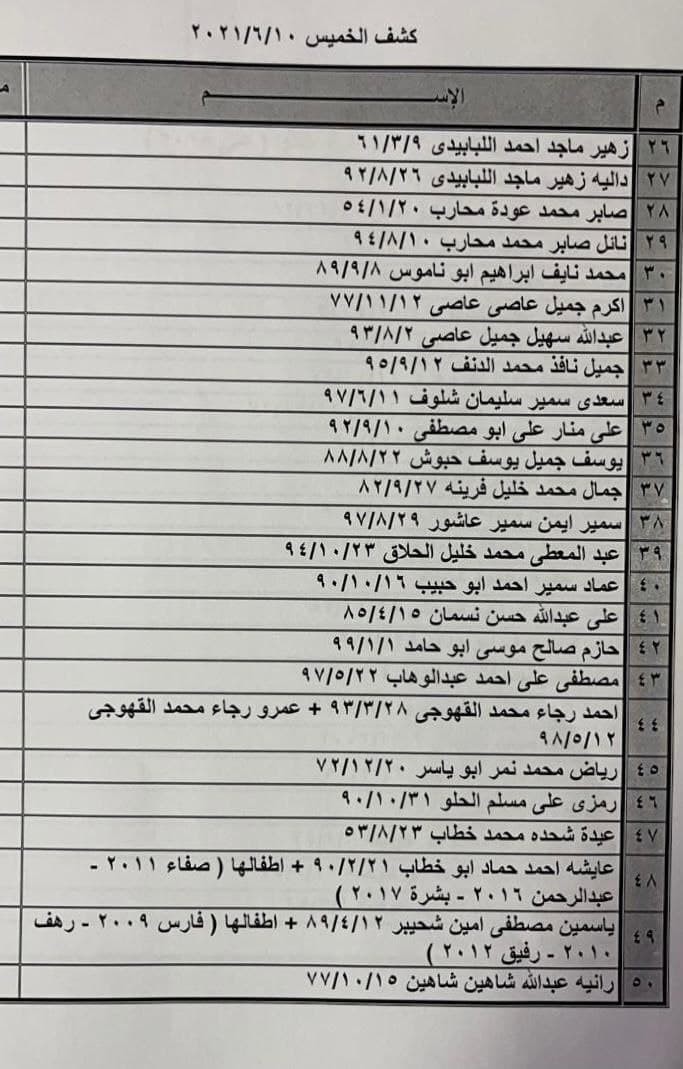 كشف الخميس ٢٠٢١/٦/١٠
م الإســـــــم
٢٦ زهير ماجد احمد اللبابيدى ٦١/٣/٩
٢٧ داليه زهير ماجد اللبابيدى ٩٢/٨/٢٦
٢٨ صابر محمد عودة محارب ٥٤/١/٢٠
٢٩ نائل صابر محمد محارب ٩٤/٨/١٠
٣٠ محمد نايف ابراهيم ابو ناموس ٨٩/٩/٨
٣١ اكرم جميل عاصى عاصى ٧٧/١١/١٢
٣٢ عبدالله سهيل جميل عاصى ٩٣/٨/٢
٣٣ جميل نافذ محمد الدنف ٩٥/٩/١٢
٣٤ سعدى سمير سليمان شلوف ٩٧/٦/١١
٣٥ على منار على ابو مصطفى ٩٢/٩/١٠
٣٦ يوسف جميل يوسف حبوش ٨٨/٨/٢٢
٣٧ جمال محمد خليل فرينه ٨٢/٩/٢٧
٣٨ سمير ايمن سمير عاشور ٩٧/٨/٢٩
٣٩ عبد المعطى محمد خليل الحلاق ٩٤/١٠/٢٣
٤٠ عماد سمير احمد ابو حبيب ٩٠/١٠/١٦
٤١ على عبدالله حسن نسمان ٨٥/٤/١٥
٤٢ حازم صالح موسى ابو حامد ٩٩/١/١
٤٣ مصطفى على احمد عبدالوهاب ٩٧/٥/٢٢
٤٤ احمد رجاء محمد القهوجى ٩٣/٣/٢٨ + عمرو رجاء محمد القهوجى
٩٨/٥/١٢
٤٥ رياض محمد نمر ابو ياسر ٧٢/١٢/٢٠
٤٦ رمزى على مسلم الحلو ٩٠/١٠/٣١
٤٧ عيدة شحده محمد خطاب ٥٣/٨/٢٣
٤٨ عايشه احمد حماد ابو خطاب ٩٠/٢/٢١ + اطفالها ( صفاء ٢٠١١ -
عبدالرحمن ٢٠١٦ - بشرة ٢٠١٧ )
٤٩ ياسمين مصطفى امين شحيبر ٨٩/٤/١٢ + اطفالها ( فارس ٢٠٠٩ - رهف
٢٠١٠ - رفيق ٢٠١٢ )
٥٠ رانيه عبدالله شاهين شاهين ٧٧/١٠/١٥